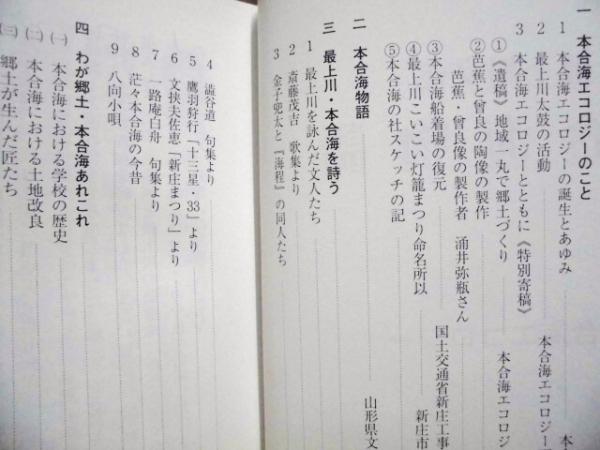 一 本合海エコロジーのこと
1 本合海エコロジーの誕生とあゆみ
2 最上川太鼓の活動
3 本合海エコロジーとともに《特別寄稿》
①《遺稿》地域一丸で郷土づくり
②芭蕉と曾良の陶像の製作
芭蕉・曾良像の製作者 涌井弥瓶さん
③本合海船着場の復元
④最上川こいこい灯籠まつり命名所以
⑤本合海の社スケッチの記
本合海エコロジー
本合海エコロジ
国土交通省新庄工事
新庄市
山形県文
二 本合海物語
三 最上川・本合海を詩う
1 最上川を詠んだ文人たち
2 斎藤茂吉 歌集より
3 金子兜太と『海程』の同人たち
4 澁谷道 句集より
5 鷹羽狩行「十三星・33」より
6 文挾夫佐恵「新庄まつり」より
7 一路庵白舟 句集より
8 茫々本合海の今昔
9 八向小唄
四 わが郷土・本合海あれこれ
㈠ 本合海における学校の歴史
㈡ 本合海における土地改良
㈢ 郷土が生んだ匠たち